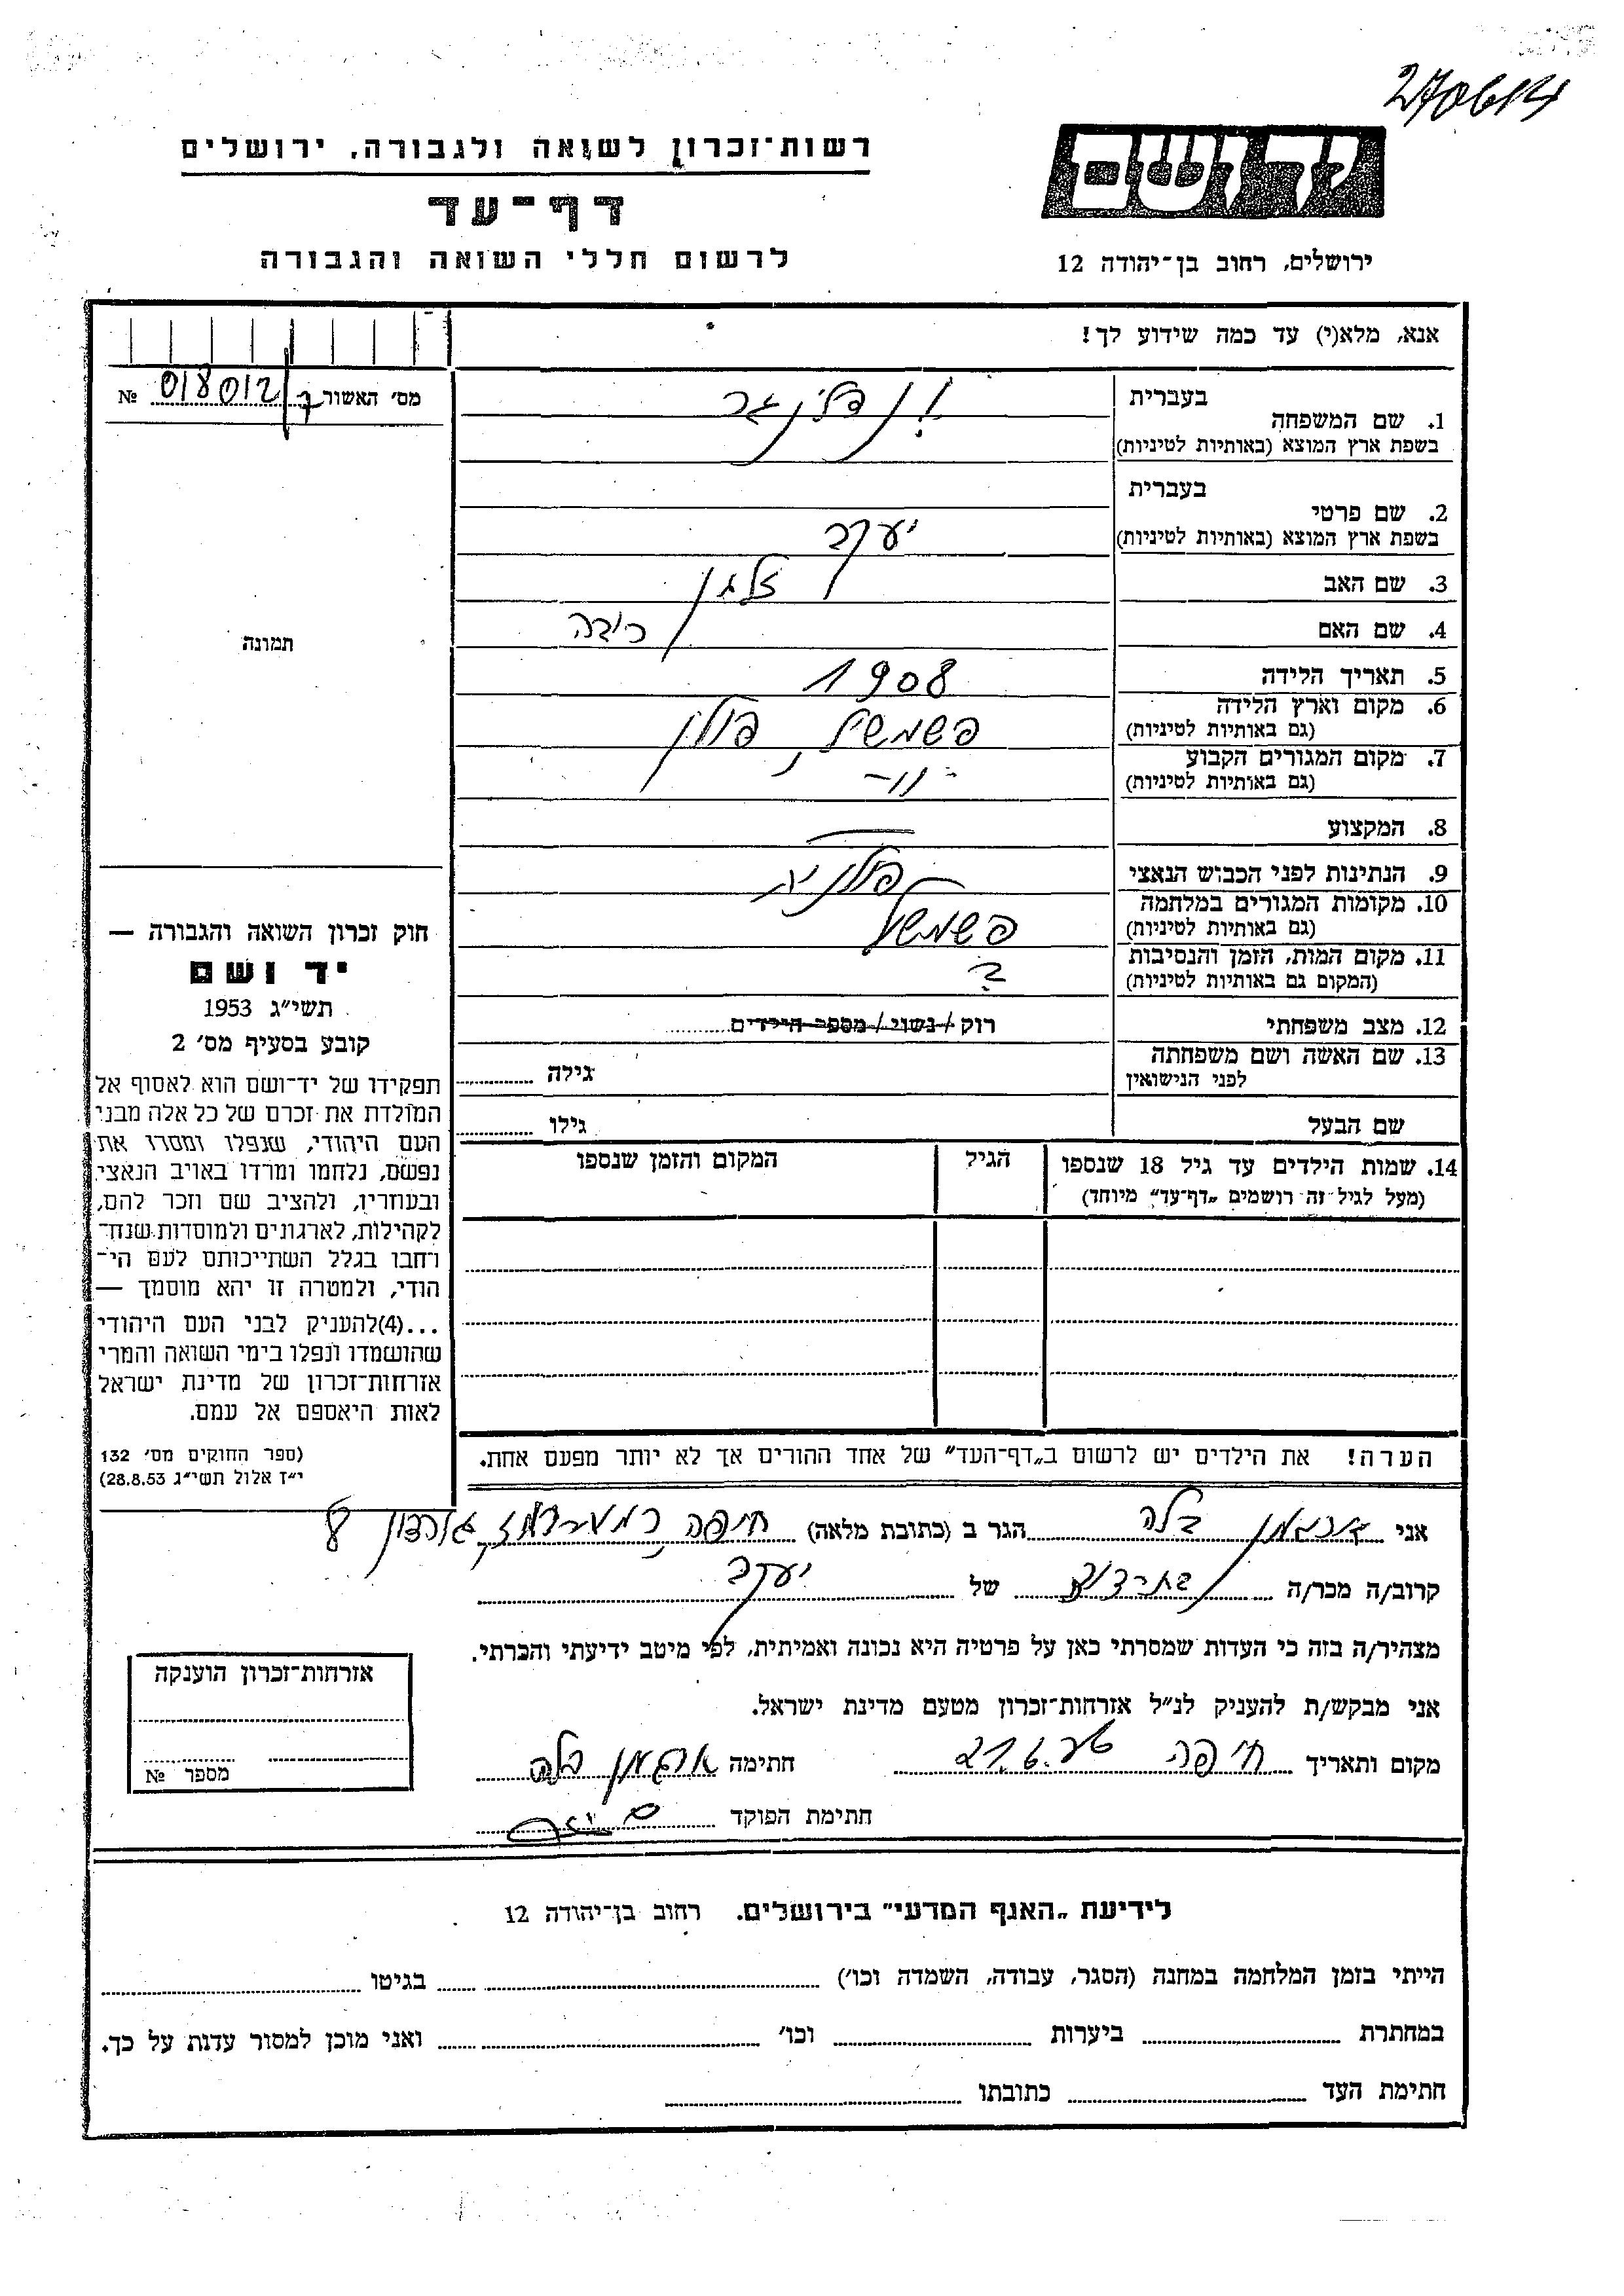 270614
רשות־זכרון לשואה ולגבורה, ירושלים
יד ושם
דף־עד
לרשום חללי השואה והגבורה
ירושלים, רחוב בן־יהודה 12
אנא, מלא(י) עד כמה שידוע לך!
מס׳ האשור 018012 №
בעברית
1. שם המשפחה
בשפת ארץ המוצא (באותיות לטיניות)
בעברית
2. שם פרטי
בשפת ארץ המוצא (באותיות לטיניות) יעקב
3. שם האב זלמן
4. שם האם
5. תאריך הלידה 1908
6. מקום וארץ הלידה
(גם באותיות לטיניות) פשמשל, פולין
7. מקום המגורים הקבוע
(גם באותיות לטיניות) -״-
8. המקצוע —
9. הנתינות לפני הכבוש הנאצי פולניה
10. מקומות המגורים במלחמה
(גם באותיות לטיניות) פשמשל
11. מקום המות, הזמן והנסיבות
(המקום גם באותיות לטיניות) ?
12. מצב משפחתי רוק / נשוי / מספר הילדים
13. שם האשה ושם משפחתה
לפני הנישואין
גילה
שם הבעל
גילו
תמונה
חוק זכרון השואה והגבורה —
יד ושם
תשי״ג 1953
קובע בסעיף מס׳ 2
תפקידו של יד־ושם הוא לאסוף אל
המולדת את זכרם של כל אלה מבני
העם היהודי, שנפלו ומסרו את
נפשם, נלחמו ומרדו באויב הנאצי
ובעוזריו, ולהציב שם וזכר להם,
לקהילות, לארגונים ולמוסדות שנח־
רחבו בגלל השתייכותם לעם הי־
הודי, ולמטרה זו יהא מוסמך —
...(4)להעניק לבני העם היהודי
שהושמדו ונפלו בימי השואה והמרי
אזרחות־זכרון של מדינת ישראל
לאות היאספם אל עמם.
(ספר החוקים מס׳ 132
י״ז אלול תשי״ג 28.8.53)
14. שמות הילדים עד גיל 18 שנספו
(מעל לגיל זה רושמים „דף־עד״ מיוחד)
הגיל
המקום והזמן שנספו
הערה! את הילדים יש לרשום ב„דף־העד״ של אחד ההורים אך לא יותר מפעם אחת.
אני ארגמן בלה הגר ב (כתובת מלאה) חיפה גורדון 8
קרוב/ה מכר/ה של יעקב
מצהיר/ה בזה כי העדות שמסרתי כאן על פרטיה היא נכונה ואמיתית, לפי מיטב ידיעתי והכרתי.
אני מבקש/ת להעניק לנ״ל אזרחות־זכרון מטעם מדינת ישראל.
מקום ותאריך חיפה 21.6. חתימה ארגמן בלה
חתימת הפוקד
אזרחות־זכרון הוענקה
מספר №
לידיעת „האגף המדעי״ בירושלים. רחוב בן־יהודה 12
הייתי בזמן המלחמה במחנה (הסגר, עבודה, השמדה וכו׳) בגיטו
במחתרת ביערות וכו׳ ואני מוכן למסור עדות על כך.
חתימת העד כתובתו